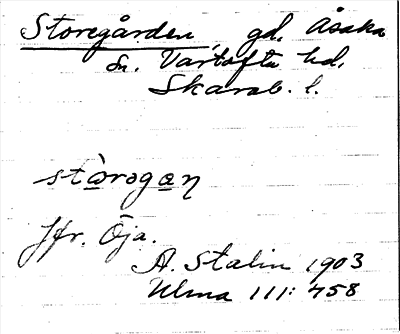 Storegården, gd. Åsaka
sn. Vartofta hd.
Skarab. l.
stàrogan
Jfr. Öja.
A. Stalin 1903
Ulma 111: 758